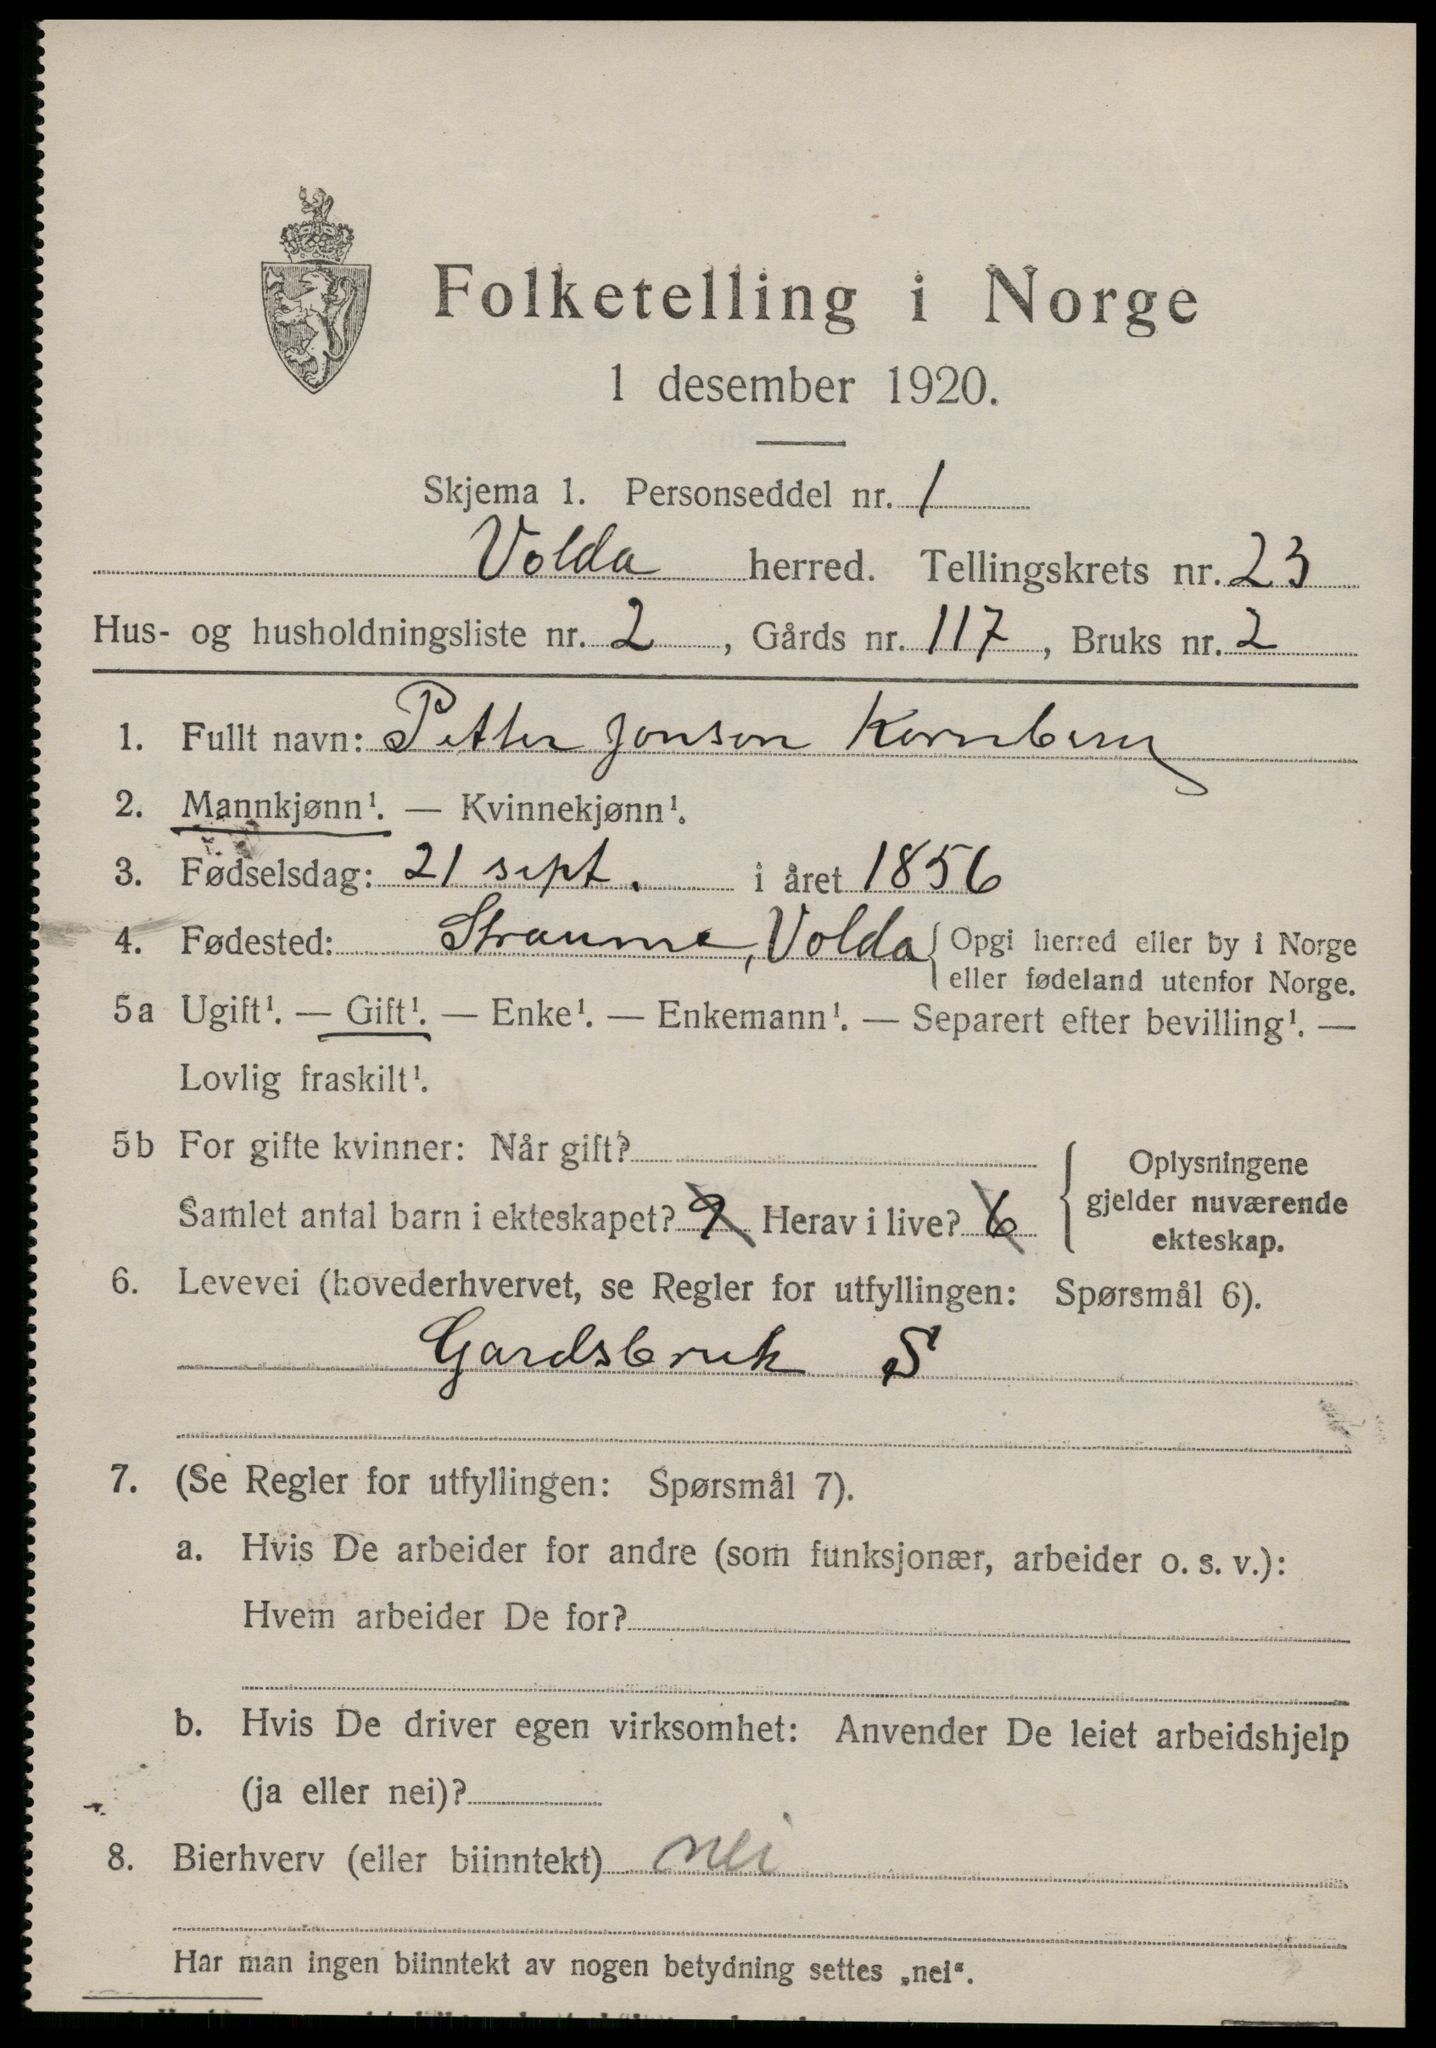 Folketelling i Norge
1 desember 1920.
Skjema 1. Personseddel nr. 1
Volda herred. Tellingskrets nr. 23
Hus- og husholdningsliste nr. 2, Gårds nr. 117, Bruks nr. 2
1. Fullt navn: Petter Jonson Kornberg
2. Mannkjønn¹. — Kvinnekjønn¹.
3. Fødselsdag: 21 sept. i året 1856
4. Fødested: Straume, Volda { Opgi herred eller by i Norge
eller fødeland utenfor Norge.
5a Ugift¹. — Gift¹. — Enke¹. — Enkemann¹. — Separert efter bevilling¹. —
Lovlig fraskilt¹.
5b For gifte kvinner: Når gift?
Samlet antal barn i ekteskapet? 9 Herav i live? 6
Oplysningene
gjelder nuværende
ekteskap.
6. Levevei (hovederhvervet, se Regler for utfyllingen: Spørsmål 6).
Gardsbruk S
7. (Se Regler for utfyllingen: Spørsmål 7).
a. Hvis De arbeider for andre (som funksjonær, arbeider o. s. v.):
Hvem arbeider De for?
b. Hvis De driver egen virksomhet: Anvender De leiet arbeidshjelp
(ja eller nei)?
8. Bierhverv (eller biinntekt) nei
Har man ingen biinntekt av nogen betydning settes „nei“.